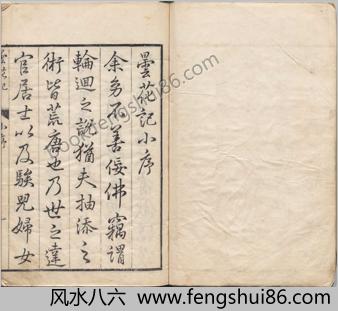 曇花記小序
余多不善佞佛竊謂
輪迴之說猶夫抽添之
術皆荒唐也乃世之達
官居士以及騃兒婦女
曇花記 小序
www.bookfengshui86.com
风水八六：www.fengshui86.com